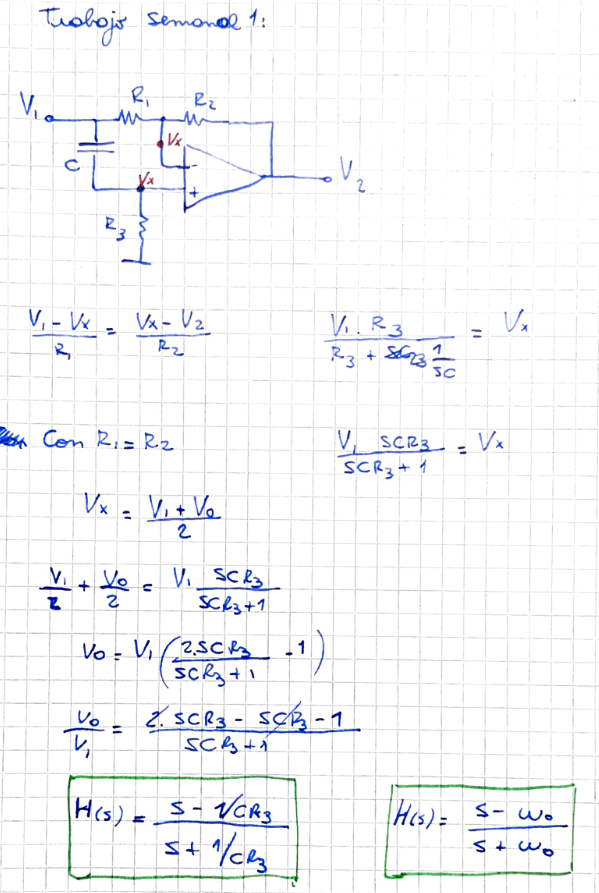 Trabajo semanal 1:
R1 R2
V1
Vx
C
Vx
-
+
V2
R3
(V1 - Vx)/R1 = (Vx - V2)/R2
(V1 . R3)/(R3 + 1/SC) = Vx
Con R1 = R2
(V1 SCR3)/(SCR3 + 1) = Vx
Vx = (V1 + Vo)/2
V1/2 + Vo/2 = V1 SCR3/(SCR3+1)
Vo = V1 (2.SCR3/(SCR3 + 1) - 1)
Vo/V1 = (2. SCR3 - SCR3 - 1)/(SCR3+1)
H(s) = (S - 1/CR3)/(S + 1/CR3)
H(s) = (S - ωo)/(S + ωo)